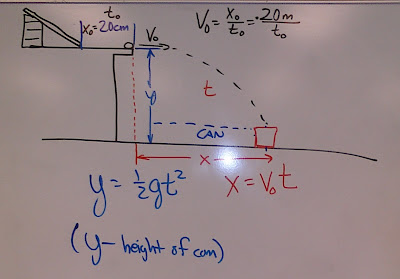 t₀
x₀=20cm
V₀
V₀ = x₀/t₀ = .20m/t₀
y
t
CAN
x
y = ½gt²
x = V₀t
(y - height of can)